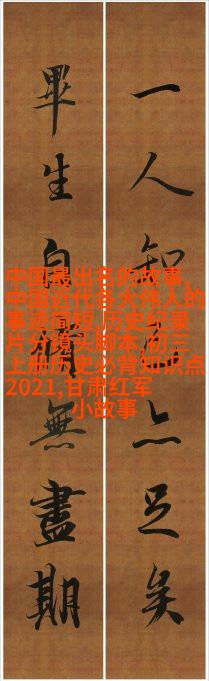 一人知亦足矣
畢生自無盡期
中国最出名的故事,
中国近代各大伟人的
事迹简短,历史纪录
片分镜头脚本,初三
上册历史必背知识点
2021,甘肃红军
小故事